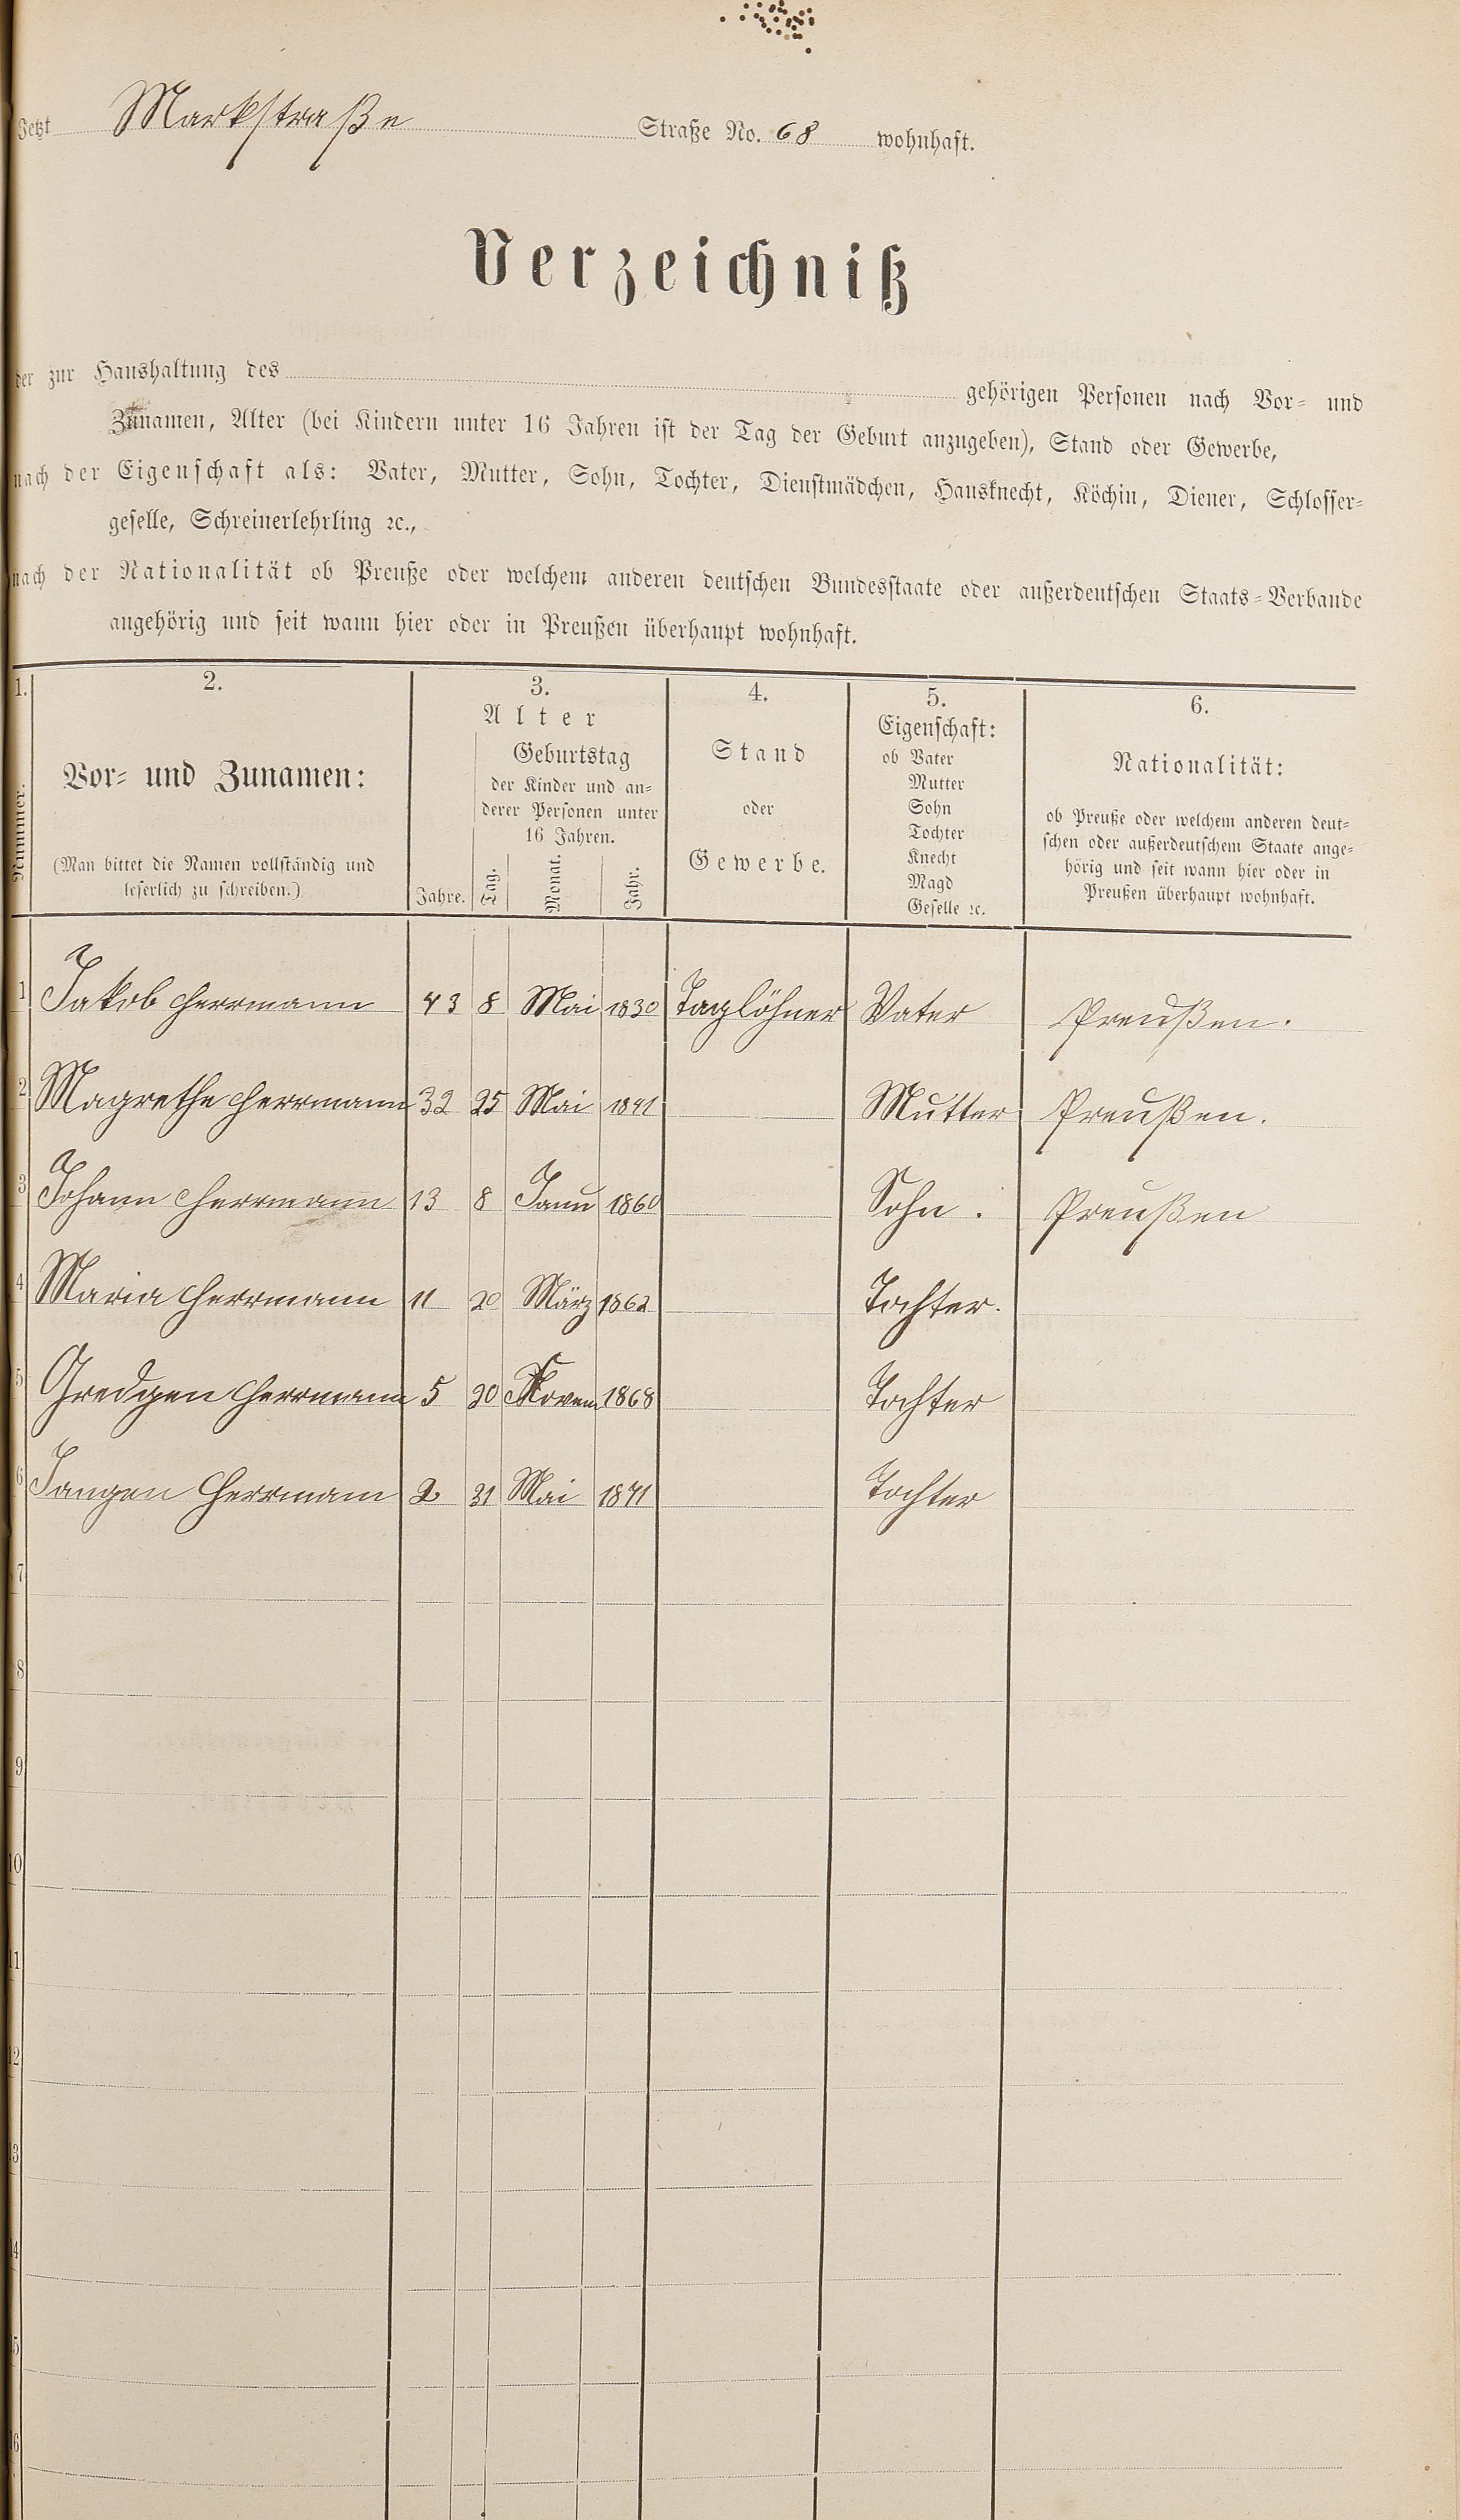 Jetzt Markstraße Straße No. 68 wohnhaft.
Verzeichniß
der zur Haushaltung des gehörigen Personen nach Vor- und
Zunamen, Alter (bei Kindern unter 16 Jahren ist der Tag der Geburt anzugeben), Stand oder Gewerbe,
nach der Eigenschaft als: Vater, Mutter, Sohn, Tochter, Dienstmädchen, Hausknecht, Köchin, Diener, Schlosser-
geselle, Schreinerlehrling ꝛc.,
nach der Nationalität ob Preuße oder welchem anderen deutschen Bundesstaate oder außerdeutschen Staats-Verbande
angehörig und seit wann hier oder in Preußen überhaupt wohnhaft.
1.
Nummer.
2.
Vor- und Zunamen:
(Man bittet die Namen vollständig und
leserlich zu schreiben.)
3.
Alter
Jahre.
Geburtstag
der Kinder und an-
derer Personen unter
16 Jahren.
Tag. Monat. Jahr.
4.
Stand
oder
Gewerbe.
5.
Eigenschaft:
ob Vater
Mutter
Sohn
Tochter
Knecht
Magd
Geselle ꝛc.
6.
Nationalität:
ob Preuße oder welchem anderen deut-
schen oder außerdeutschem Staate ange-
hörig und seit wann hier oder in
Preußen überhaupt wohnhaft.
1 Jakob Herrmann 43 8 Mai 1830 Taglöhner Vater Preußen.
2 Magrethe Herrmann 32 25 Mai 1841 Mutter Preußen.
3 Johann Herrmann 13 8 Janu 1860 Sohn. Preußen
4 Maria Herrmann 11 20 März 1862 Tochter.
5 Gredgen Herrmann 5 20 Novem 1868 Tochter
6 Herrmann 2 31 Mai 1871 Tochter
7
8
9
10
11
12
13
14
15
16